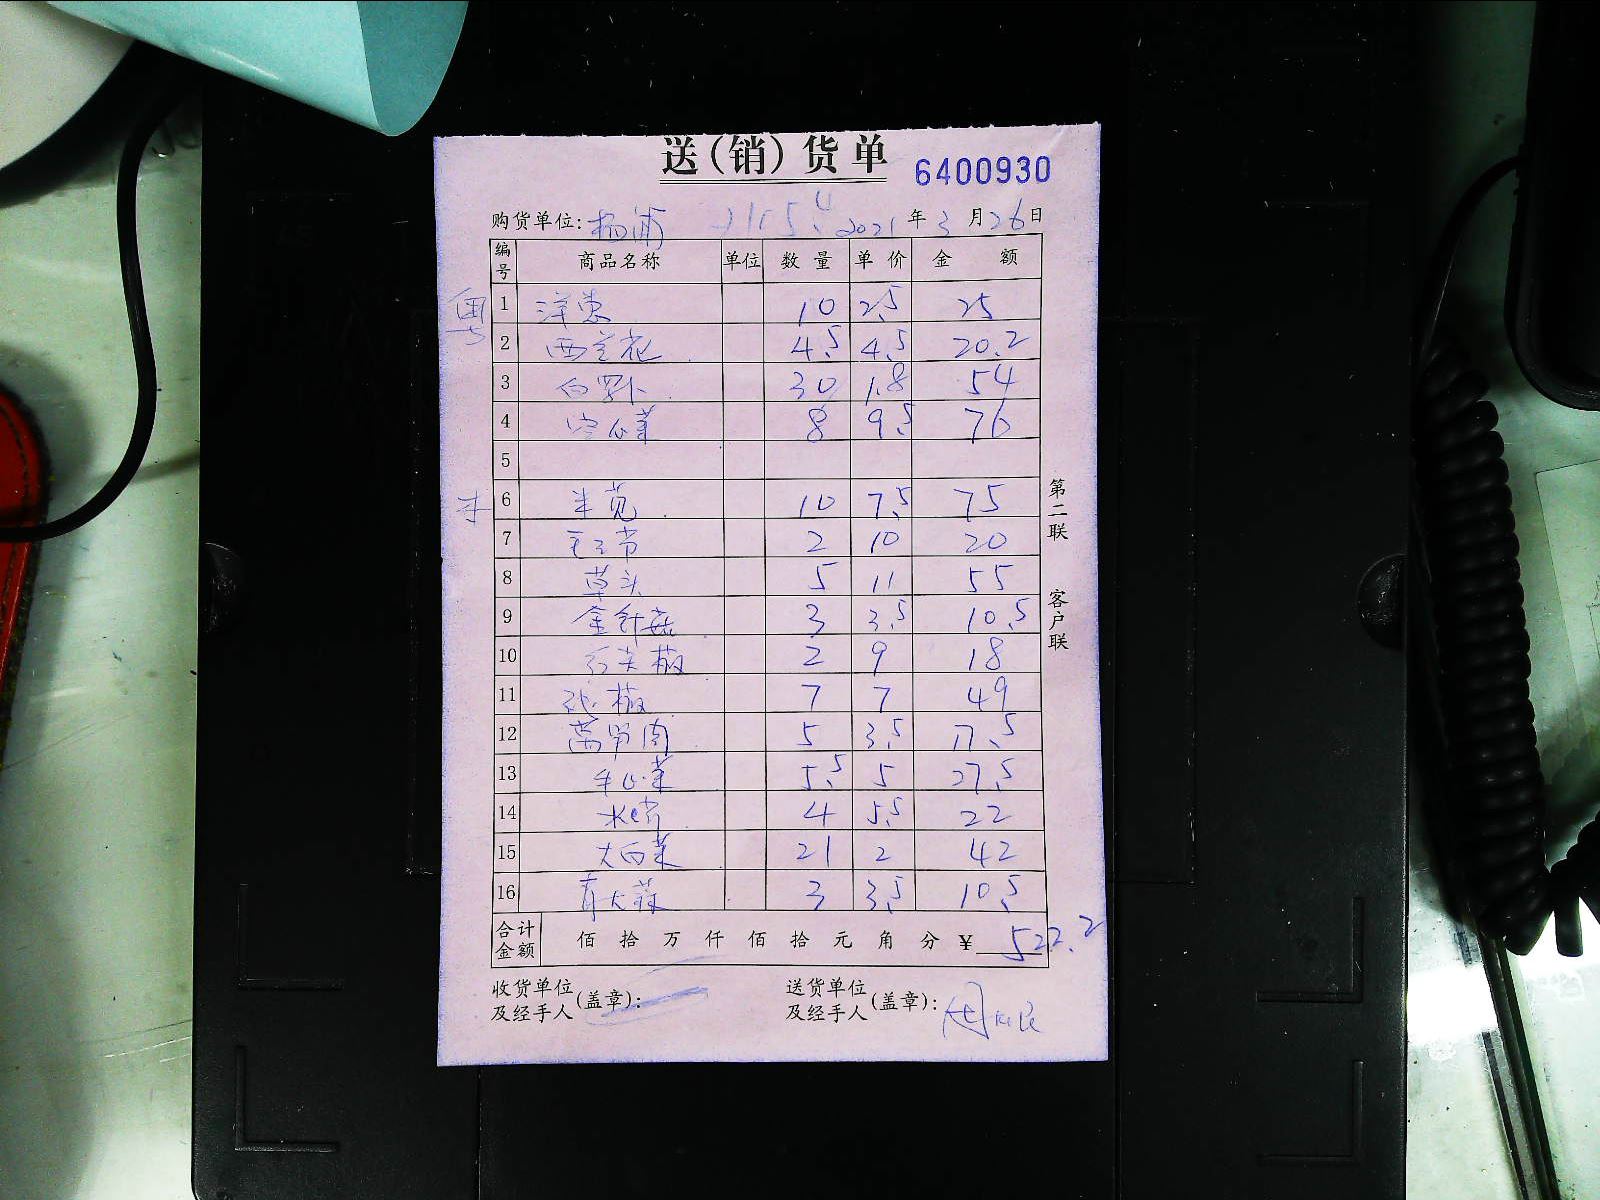 送(销)货单 6400930
购货单位: 杨浦 2021年3月26日
编号 商品名称 单位 数量 单价 金额
1 洋葱 10 2.5 25
2 西兰花 4.5 4.5 20.2
3 白罗卜 30 1.8 54
4 空心菜 8 9.5 76
5
6 米苋 10 7.5 75
7 2 10 20
8 草头 5 11 55
9 金针菇 3 3.5 10.5
10 红尖椒 2 9 18
11 椒 7 7 49
12 莴笋肉 5 3.5 17.5
13 牛心菜 5.5 5 27.5
14 水芹 4 5.5 22
15 大白菜 21 2 42
16 青大蒜 3 3.5 10.5
合计金额 佰拾万仟佰拾元角分 ¥ 522.2
收货单位及经手人(盖章):
送货单位及经手人(盖章):
第二联 客户联